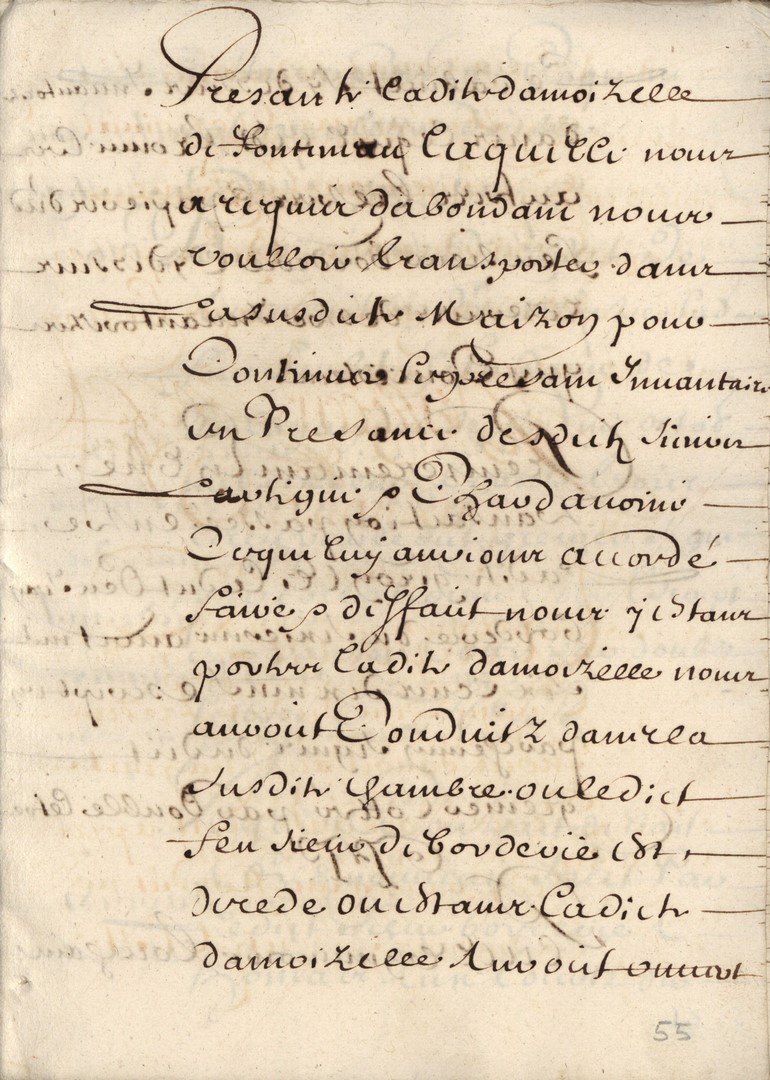 Presante ladite damoizelle
de Fonteneau laquelle nous
a requier d'abondant nous
voulloir transporter dans
la susdite Maizon pour
Continuer le presant Inuantaire
en Presance desdicts sieurs
Lartigue & Chardauoine
Ce que luy aurions accordé
faire & de ffaut nous y estans
portes ladite damoizelle nous
auroit Conduitz dans la
susdite chambre ou ledict
feu sieur de borderie est
decede ou estans Ladicte
damoizelle Auroit ouuert
55